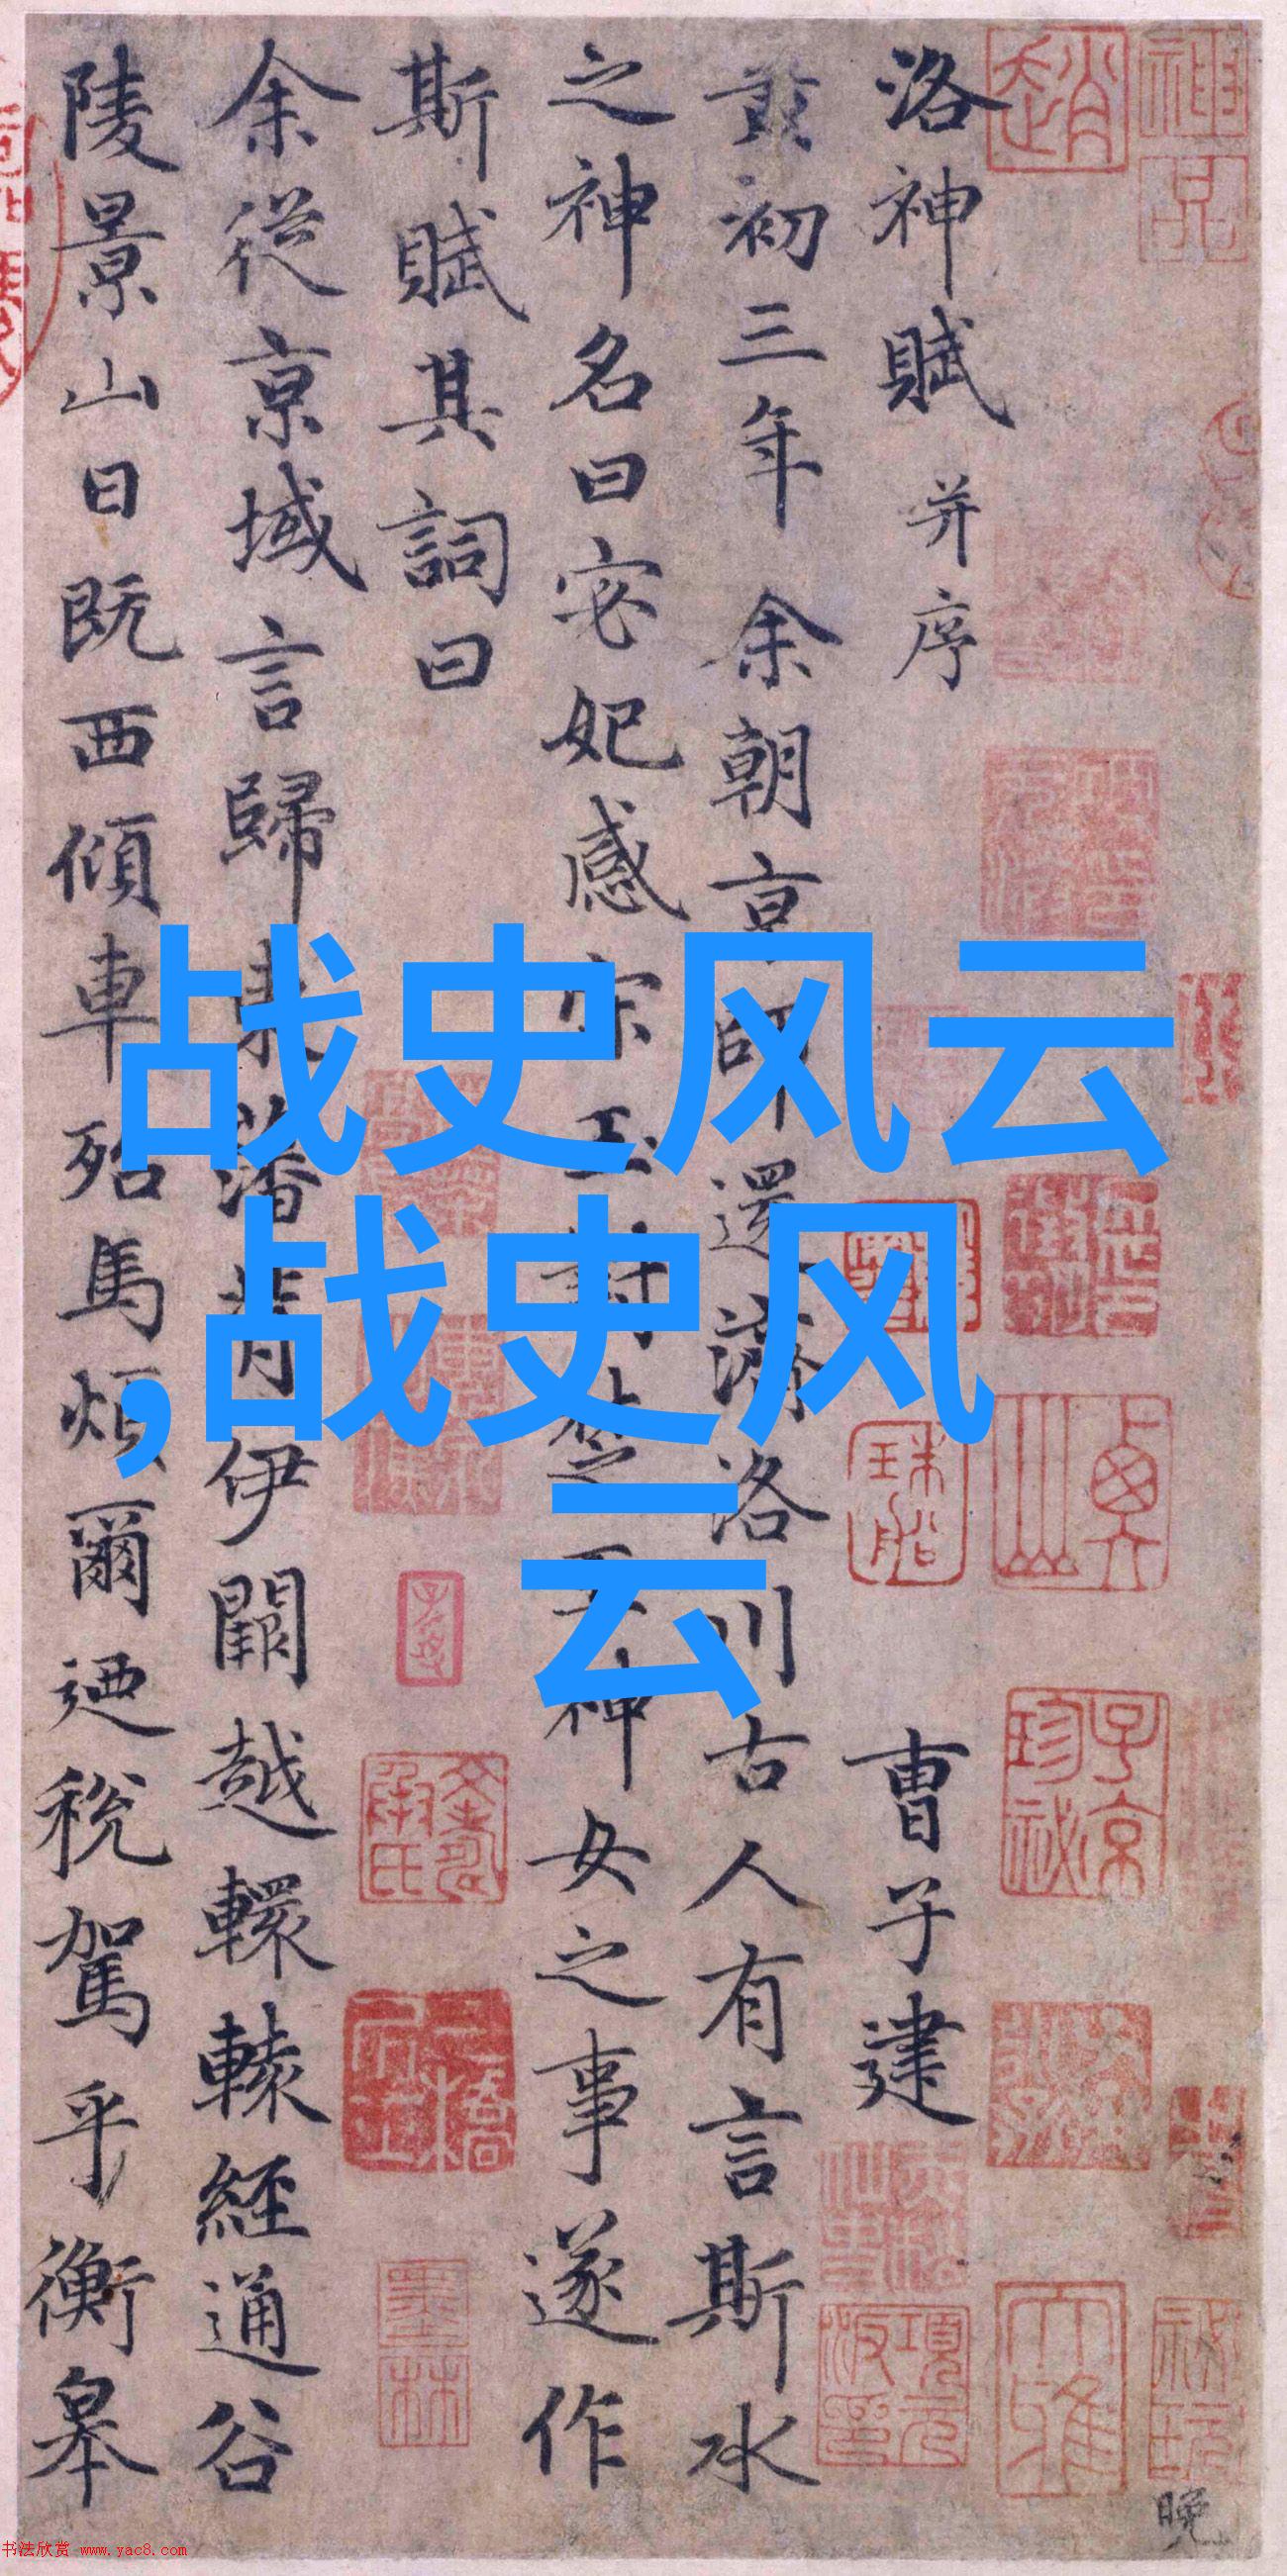 战史风云
,战史风
云
洛神賦 并序
曹子建
黄初三年余朝京師還濟洛川古人有言斯水
之神名曰宓妃感宋玉對楚王神女之事遂作
斯賦其詞曰
余從京域言歸東藩背伊闕越轘轅經通谷
陵景山日既西傾車殆馬煩爾迺稅駕乎衡皋
趙
子京
珍祕
墨林
項元
汴印
晚
书法欣赏 www.yac8.com